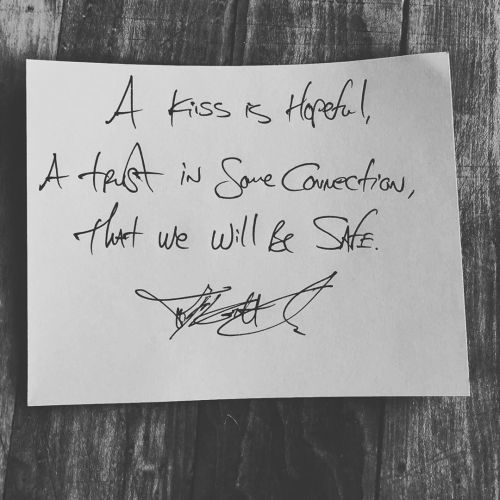 A Kiss is Hopeful,
A trust in Some Connection,
that we will Be SAFE.